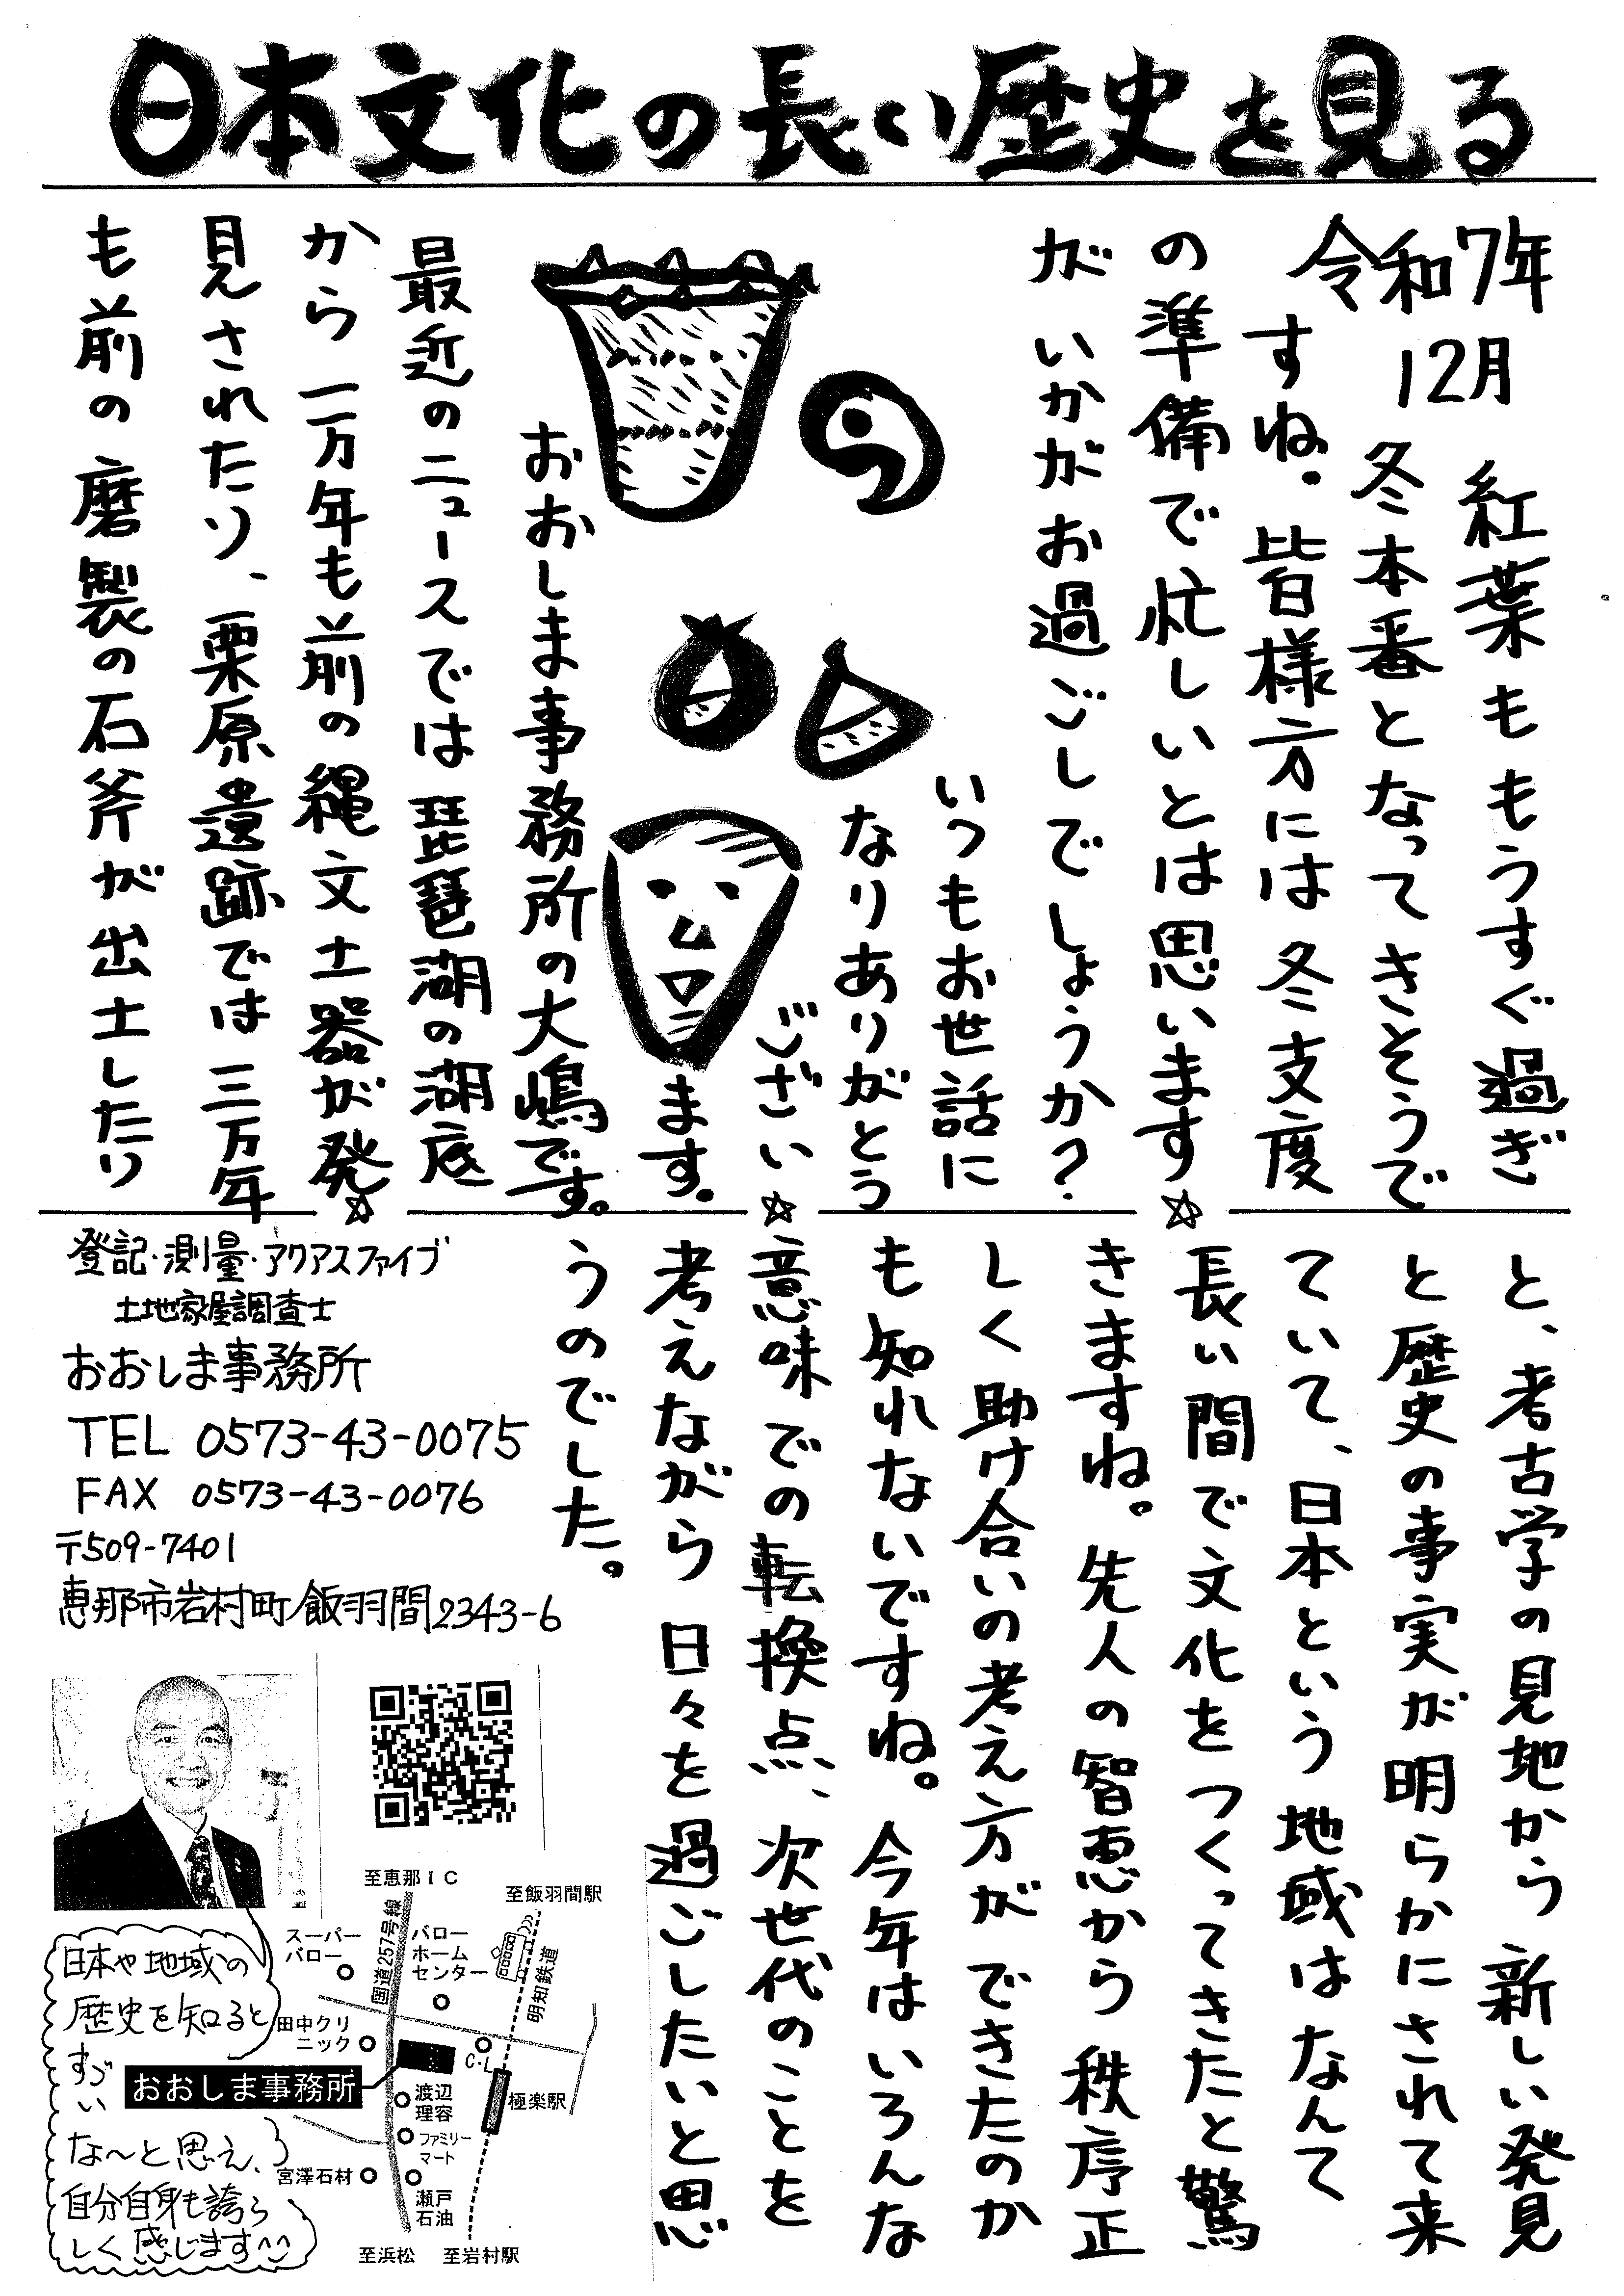 日本文化の長い歴史を見る
令和7年
12月
紅葉ももうすぐ過ぎ
冬本番となってきそうで
すね。皆様方には冬支度
の準備で忙しいとは思います
がいかがお過ごしでしょうか?
いつもお世話に
なりありがとう
ござい
ます。
おおしま事務所の大嶋です。
最近のニュースでは琵琶湖の湖底
から一万年も前の縄文土器が発
見されたり、栗原遺跡では三万年
も前の磨製の石斧が出土したり
と、考古学の見地から新しい発見
と歴史の事実が明らかにされて来
ていて、日本という地域はなんて
長い間で文化をつくってきたと驚
きますね。先人の智恵から秩序正
しく助け合いの考え方ができたのか
も知れないですね。今年はいろんな
意味での転換点、次世代のことを
考えながら日々を過ごしたいと思
うのでした。
登記・測量・アクアスファイブ
土地家屋調査士
おおしま事務所
TEL 0573-43-0075
FAX 0573-43-0076
〒509-7401
恵那市岩村町飯羽間2343-6
日本や地域の
歴史を知ると
すごい
な〜と思え、
自分自身も誇ら
しく感じます^^
至恵那IC
至飯羽間駅
国道257号線
スーパー
バロー
バロー
ホーム
センター
明知鉄道
田中クリ
ニック
C・L
おおしま事務所
渡辺
理容
極楽駅
ファミリー
マート
宮澤石材
瀬戸
石油
至浜松
至岩村駅